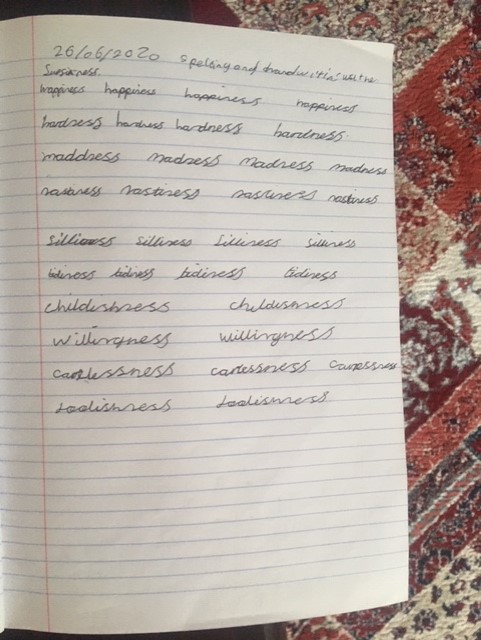 26/06/2020 Spelling and handwriting with the
happiness happiness happiness happiness
hardness hardness hardness hardness
maddness madness madness madness
nastiness nastiness nastiness nastiness
silliness silliness silliness silliness
tidiness tidiness tidiness tidiness
childishness childishness
willingness willingness
carelessness carlessness
foolishness foolishness